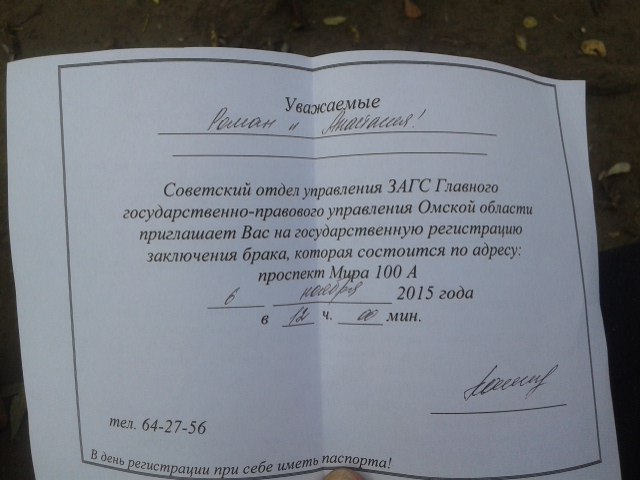 Уважаемые
Роман и Анастасия!
Советский отдел управления ЗАГС Главного
государственно-правового управления Омской области
приглашает Вас на государственную регистрацию
заключения брака, которая состоится по адресу:
проспект Мира 100 А
6 ноября 2015 года
в 12 ч. 00 мин.
тел. 64-27-56
В день регистрации при себе иметь паспорта!